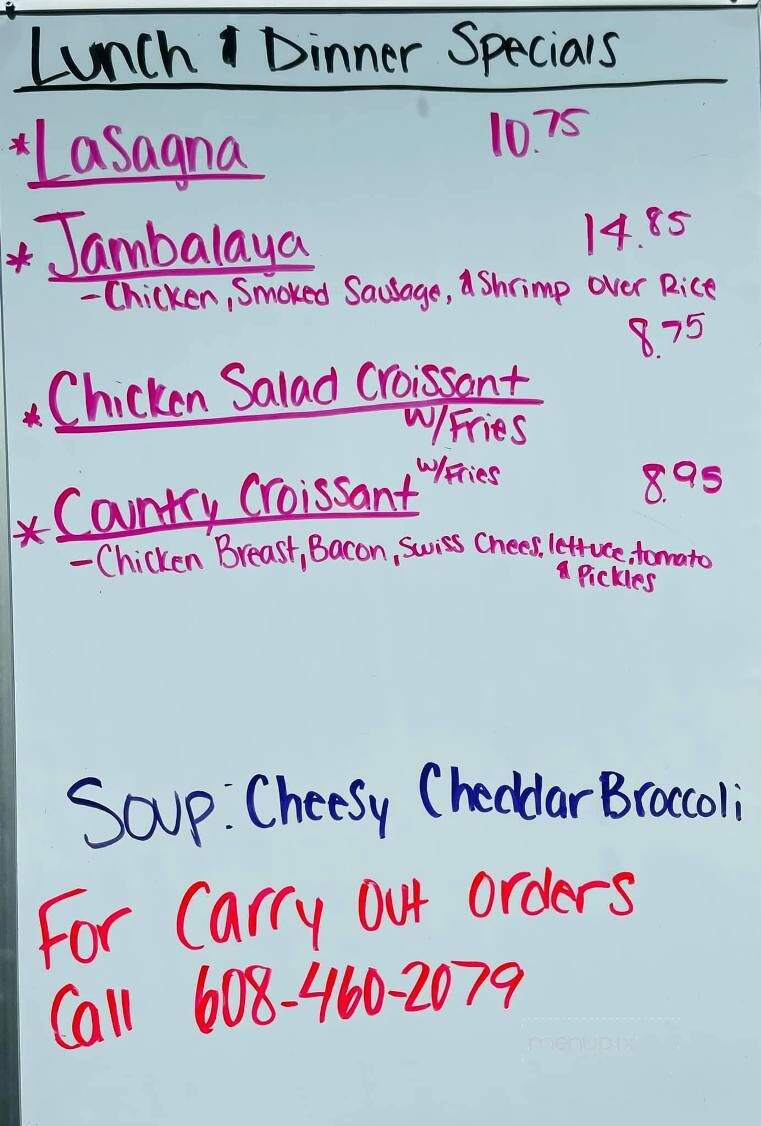 Lunch & Dinner Specials
* Lasagna 10.75
* Jambalaya 14.85
- Chicken, Smoked Sausage, & Shrimp over Rice
8.75
* Chicken Salad Croissant
w/Fries
* Country Croissant w/Fries 8.95
- Chicken Breast, Bacon, Swiss Chees, lettuce, tomato
& Pickles
Soup: Cheesy Cheddar Broccoli
For Carry Out orders
Call 608-460-2079
menupix